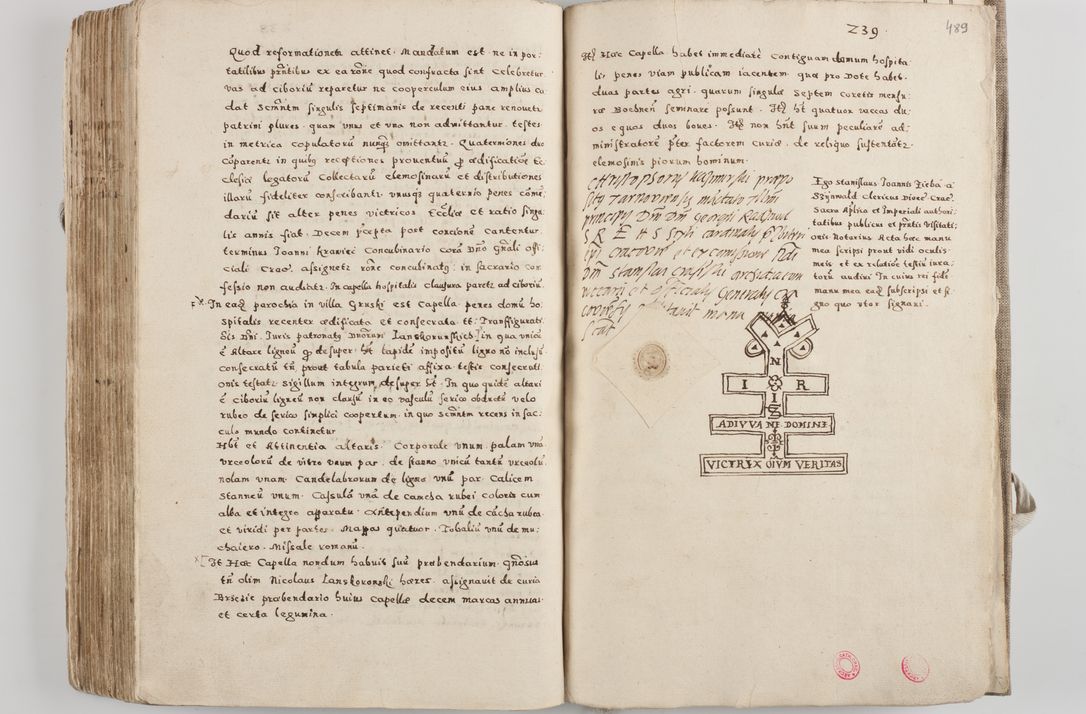 Quod reformationem attinet. Mandatum est ne in por:
tatilibus pñtibus ex ea rõne quod confracta sint Celebretur
vas ad ciboriũ reparetur ne cooperculum eius amplius ca
dat Scm̃ntm singulis septimanis de recenti pane renovetur
patrini plures quam vnus et vna non admittantur testes
in metrica copulatorũ nunq̃ omittantr. Quaterniones duo
cõparentr in quibus receptiones proventuũ ꝓ ædificatiõe Ec
clesiæ legatorũ Collectarũ elemosinarũ et distributiones
illarũ fideliter conscribantr. vnusq quaternio penes cõmẽ
dariũ sit alter penes victricos Ecc̃læ et ratio singu
lis annis fiat. Decem p̃cepta post concionẽ cantentur
terminus Joanni Kraviec Concubinario corã Dño Gñali offi
ciali Crac̃. assignetr rõne concubinatq in sacrario con
fessio non audiatr. In capella hospitalis clausura paretr ad ciboriũ.
In eadẽ parochia in villa Gruski est Capella penes domũ ho
spitalis recenter ædificata et consecrata tt. Transfigurati
Dñi. Juris patronatq Dnorum Lanskorunskich in qua vnicũ
ẽ Altare ligneũ desuper ht lapidẽ impositũ ligno nõ inclusũ
consecratũ tñ prout tabula parieti affixa testis consecrati
onis testatr sigillum integrum desuper ht. In quo quidẽ altari
ẽ Ciboriũ ligneũ non clausũ in eo vasculũ sericeo obductũ velo
rubeo de serico simplici coopertum in quo Scm̃ntm recens in sac:
culo mundo continetur
Hbt et Attinentia altaris. Corporale vnum. palam vnã
vrceolorũ de vitro vnum par. de stanno vnicũ tantũ vrceolũ
nolam vnam. Candelabrorum de ligno vnũ par. Calicem
stanneũ vnum. Casulã vnã de cancha rubei coloris cum
alba et integro apparatu. Antependium vnũ de cãcha rubea
et viridi per partes. Mappas quatuor. Tobaliũ vnũ de mu:
chaiero. Missale romanũ.
It Hæc Capella nondum habuit suũ præbendarium qñosius
tñ olim Nicolaus Lanskoronski hæres assignavit de curia
Brsezie præbendario huius capellæ decem marcas annuas
et certa legumina.
239
489
Itẽ Hæc Capella habet immediatè Contiguam domum hospita
lis penes viam publicam iacentem quæ pro Dote habet
duas partes agri. quarum singulæ septem coretis mensu
ræ Boebnen seminari possunt. Itẽ ht quatuor vaccas du
os equos duos boves. Itẽ non hñt suum peculiarẽ ad:
ministratorẽ p̃ter factorem curiæ. de reliquo sustentãtr
elemosinis piorum hominum.
Christophorus Kazimirski præpo
situs Tarnoviensis
principis Dñi Dñi Georgii Radziwil
S R E
epi Cracovien et ex comissione
Dñi Stanislai archidiaconi
vicarii et officialis generalis
manu
Ego Stanislaus Joannis Zieba a
Szynwald clericus Diœc. Crac.
Sacra Aplica et Imperiali authori:
tatibus publicus et pñtis visitati:
onis Notarius Acta hæc manu
mea scripsi prout vidi oculis
meis et ex relatiõe testiũ iura:
torũ audivi In cuius rei fidẽ
manu mea eadẽ subscripsi et si
gno quo vtor signavi.
N
I R
ADIVVA ME DOMINE
VICTRIX OIVM VERITAS